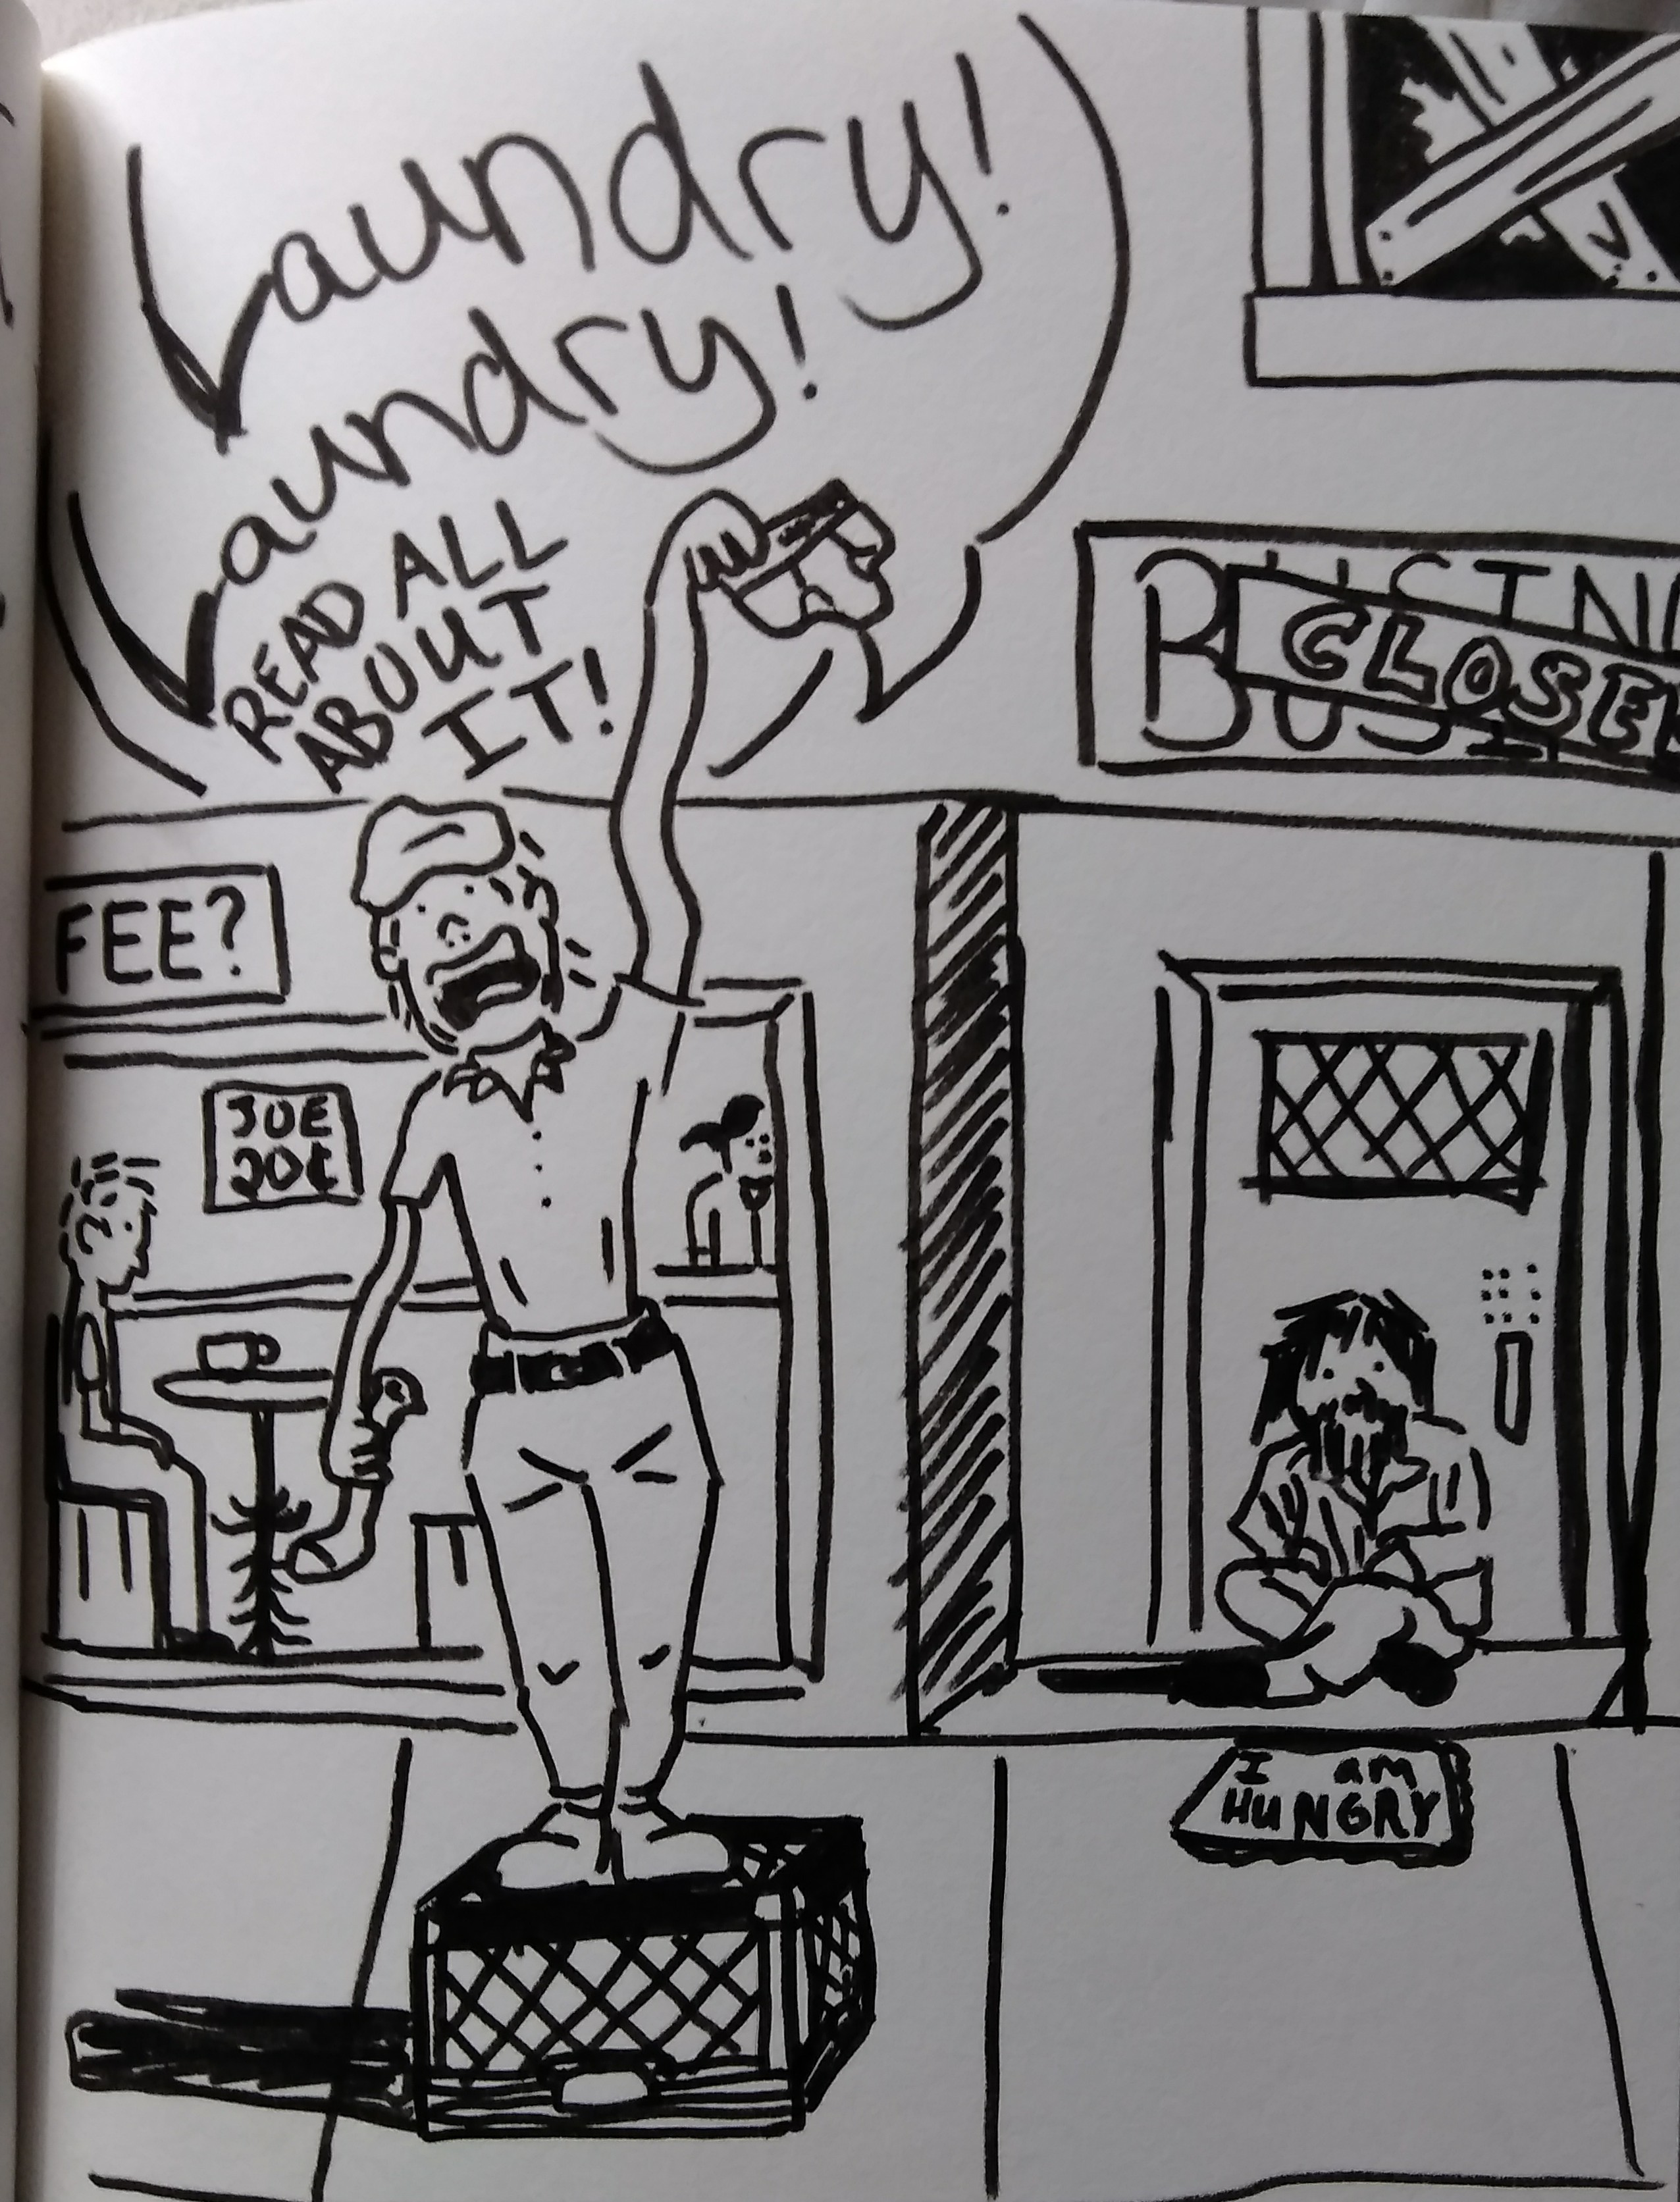 Laundry!
Laundry!
READ ALL
ABOUT
IT!
CLOSE
FEE?
JOE
20¢
I am
HUNGRY